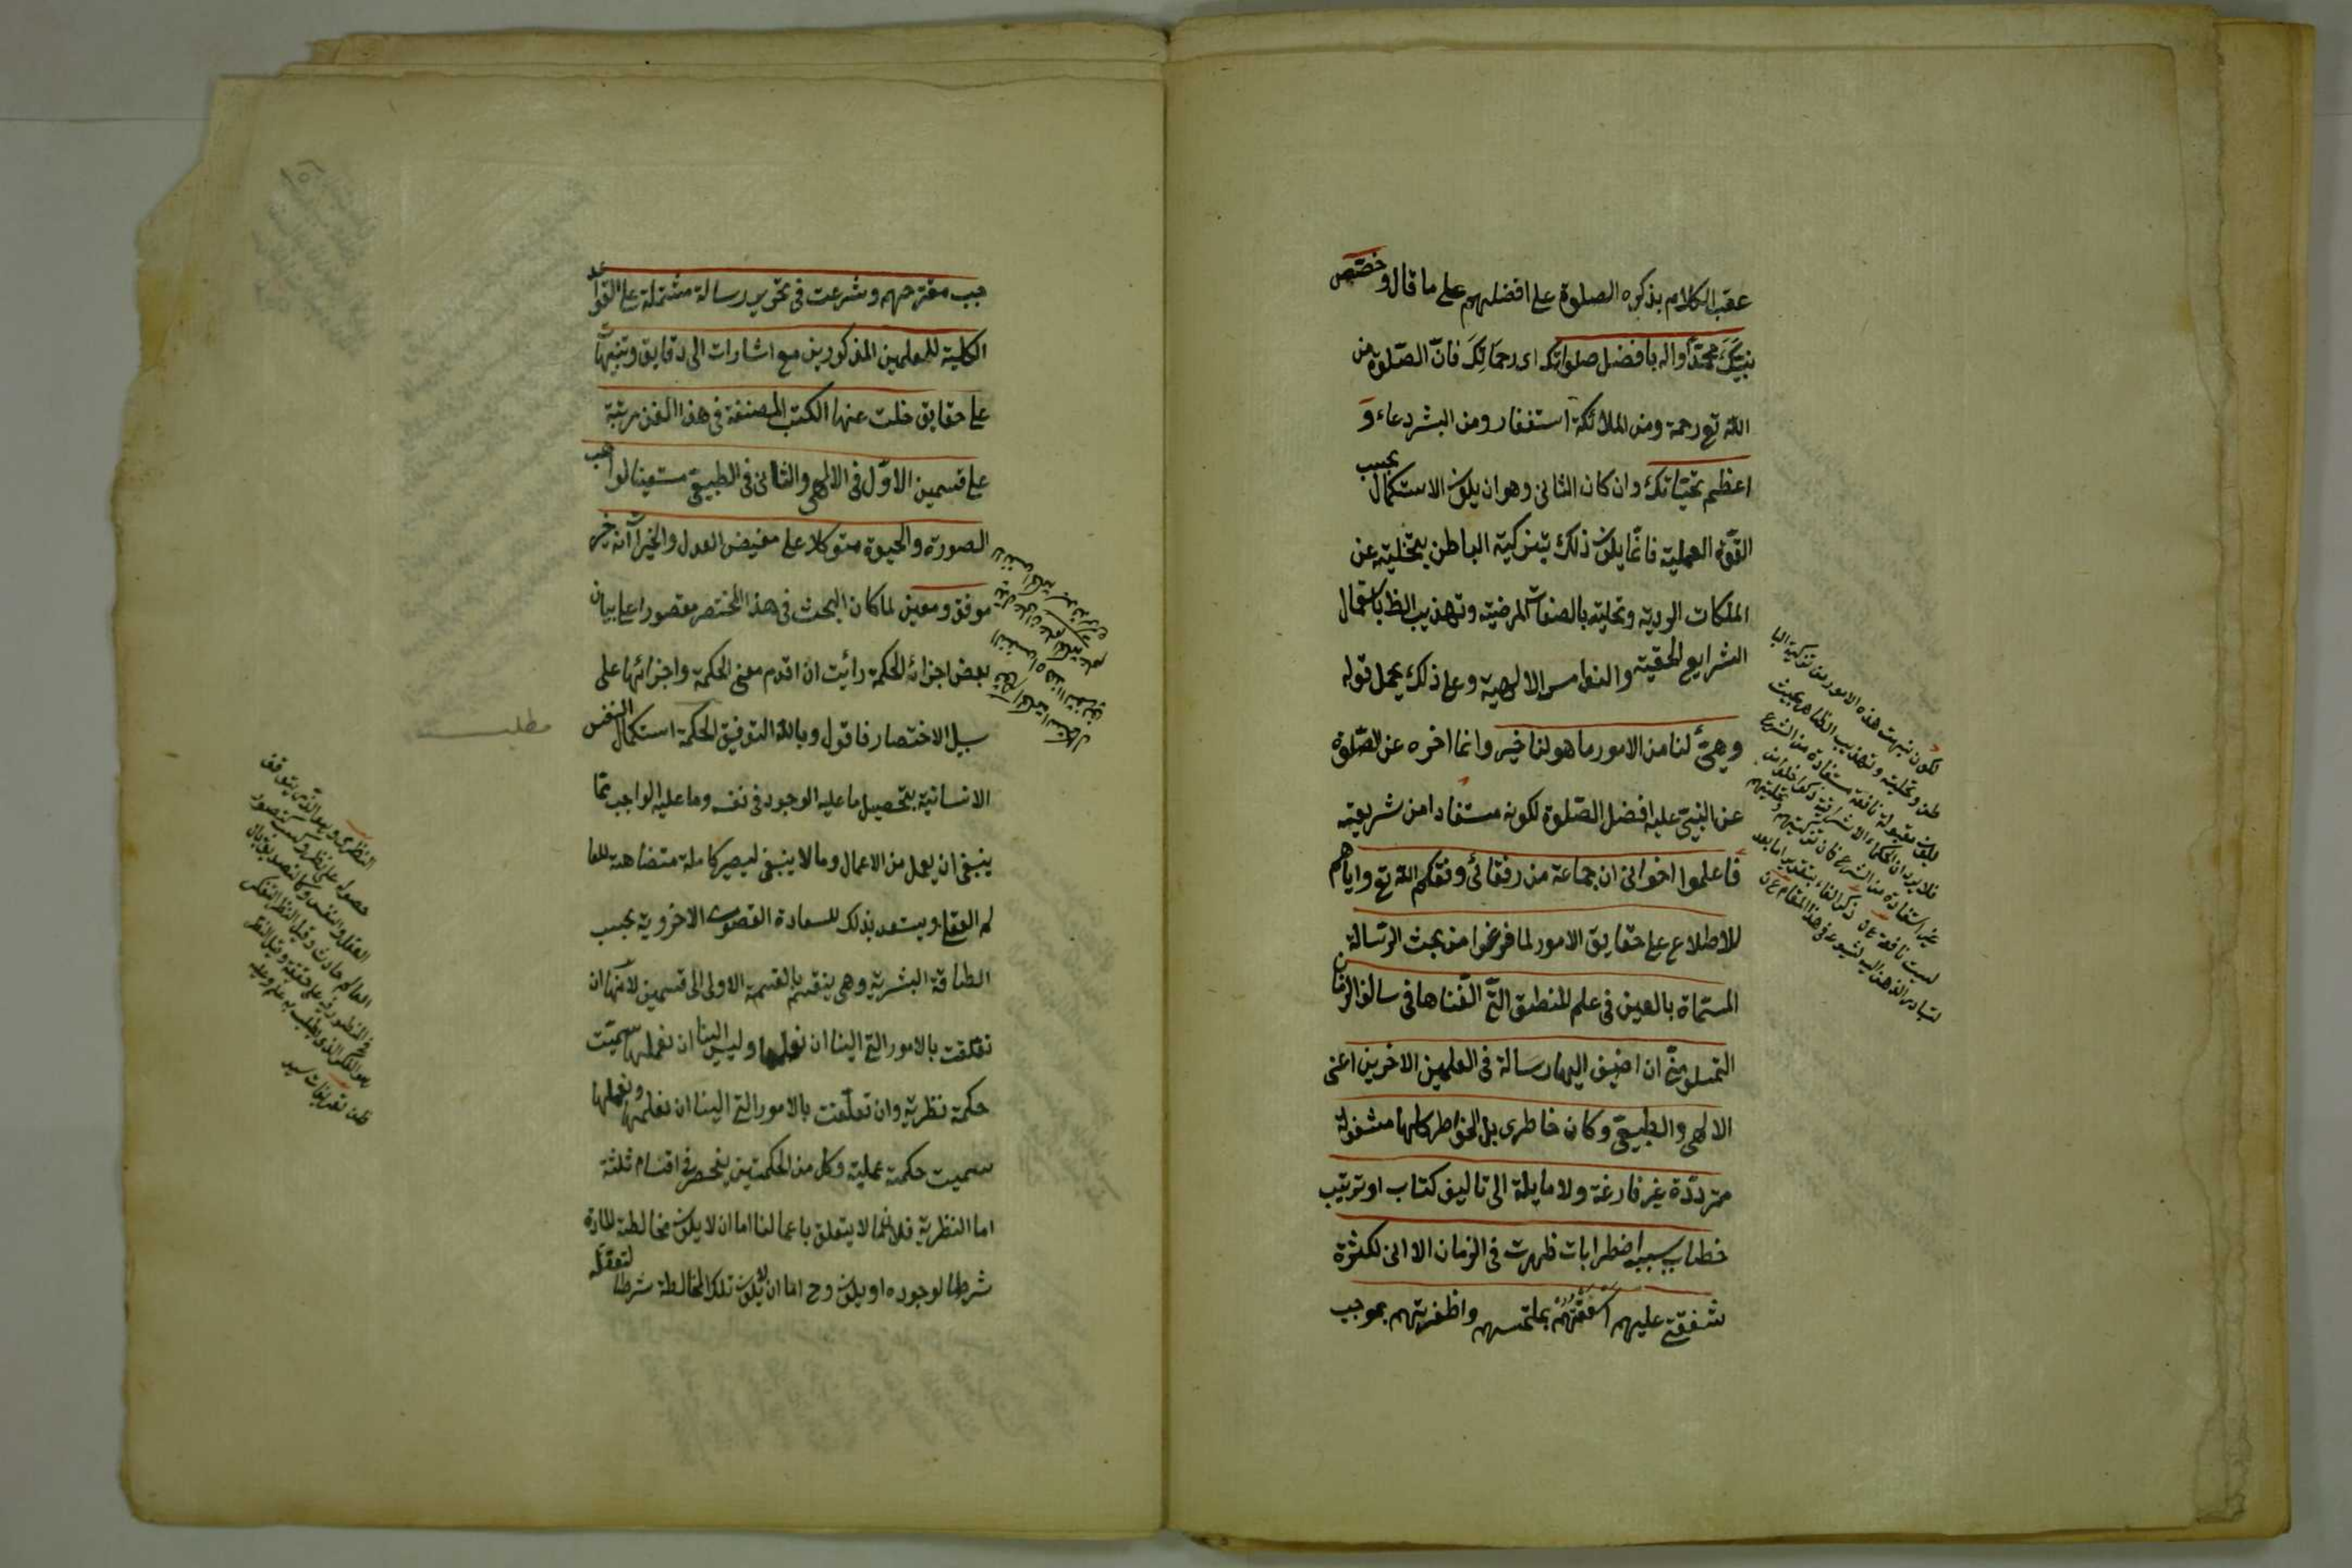 عقب الكلام بذكره الصلوة على افضلهم على ما قال وخصّص
نبيّك محمّدا واله بافضل صلواتك اى رحماتك فانّ الصّلوة من
اللّه تع رحمة ومن الملائكة استغفار ومن البشر دعاء و
اعظم تحيّاتك وان كان الثانى وهو ان يكون الاستكمال بحسب
القوّة العملية فانّما يكون ذلك بتزكية الباطن بتخليته عن
الملكات الردية وتحليته بالصفات المرضية وتهذيب الظ باستعمال
الشرايع الحقية والنواميس الالهية وعلى ذلك يحمل قوله
وهيّئ لنا من الامور ما هو لنا خير وانما اخره عن الصّلوة
عن النبىّ عليه افضل الصّلوة لكونه مستفادا من شريعته
فاعلموا اخوانى ان جماعة من رفقائى وفقكم اللّه تع واياهم
للاطلاع على حقايق الامور لما فرغوا من بحث الرسالة
المسمّاة بالعين فى علم المنطق التى الّفناها فى سالف الزمان
التمسوا منّى ان اضيف اليها رسالة فى العلمين الاخرين اعنى
الالهى والطبيعى وكان خاطرى بل الخواطر كلها مشغولة
متردّدة غير فارغة ولا مايلة الى تاليف كتاب او ترتيب
خطاب بسبب اضطرابات ظهرت فى الزمان الا انى لكثرة
شفقتى عليهم اسعفتهم بملتمسهم واظفرتهم بموجب
لكون نبهت هذه الامور من تزكية البا
طن وتحليته وتهذيب الظاهر بحيث
يكون مقبولة نافعة مستفادة من الشرع
فلا يرد ان الحكماء الاشراقية
غير استفادة من الشرع فان تزكيتهم وتحليتهم
ليست نافعة
لتبادر الذهن اليه فى هذا المقام
جب مقترحهم وشرعت فى تحرير رسالة مشتملة على القواعد
الكلية للعلمين المذكورين مع اشارات الى دقايق وتنبيهات
على حقايق خلت عنها الكتب المصنفة فى هذا الفن مرتبة
على قسمين الاوّل فى الالهى والثانى فى الطبيعى مستعينا لواهب
الصورة والحيوة متوكلا على مفيض العدل والخيرات انه خير
موفق ومعين لما كان البحث فى هذا المختصر مقصورا على بيان
بعض اجزاء الحكمة رائيت ان اقدم معنى الحكمة واجزائها على
سبيل الاختصار فاقول وبالله التوفيق الحكمة استكمال النفس
الانسانية بتحصيل ما عليه الوجود فى نفسه وما عليه الواجب ممّا
ينبغى ان يعمل من الاعمال وما لا ينبغى ليصير كاملة متضاهية للعا
لم العقلى ويستعد بذلك للسعادة القصوى الاخروية بحسب
الطاقة البشرية وهى ينقسم بالقسمة الاولى الى قسمين لانّها ان
تعلقت بالامور التى الينا ان نعلمها وليس الينا ان نعملها سمّيت
حكمة نظرية وان تعلّقت بالامور التى الينا ان نعلمها ونعملها
سميت حكمة عملية وكل من الحكمتين ينحصر فى اقسام ثلثة
اما النظرية فلانّ ما لا يتعلق باعمالنا اما ان لا يكون مخالطة المادة
شرطا لوجوده او يكون وح اما ان لا يكون تلك المخالطة شرطا لتعقله
مطلب
النظرى وهو الّذى يتوقف
حصوله على نظر وكسب كتصور
العقل والنفس وكالتصديق بان
العالم حادث وقيل النظر